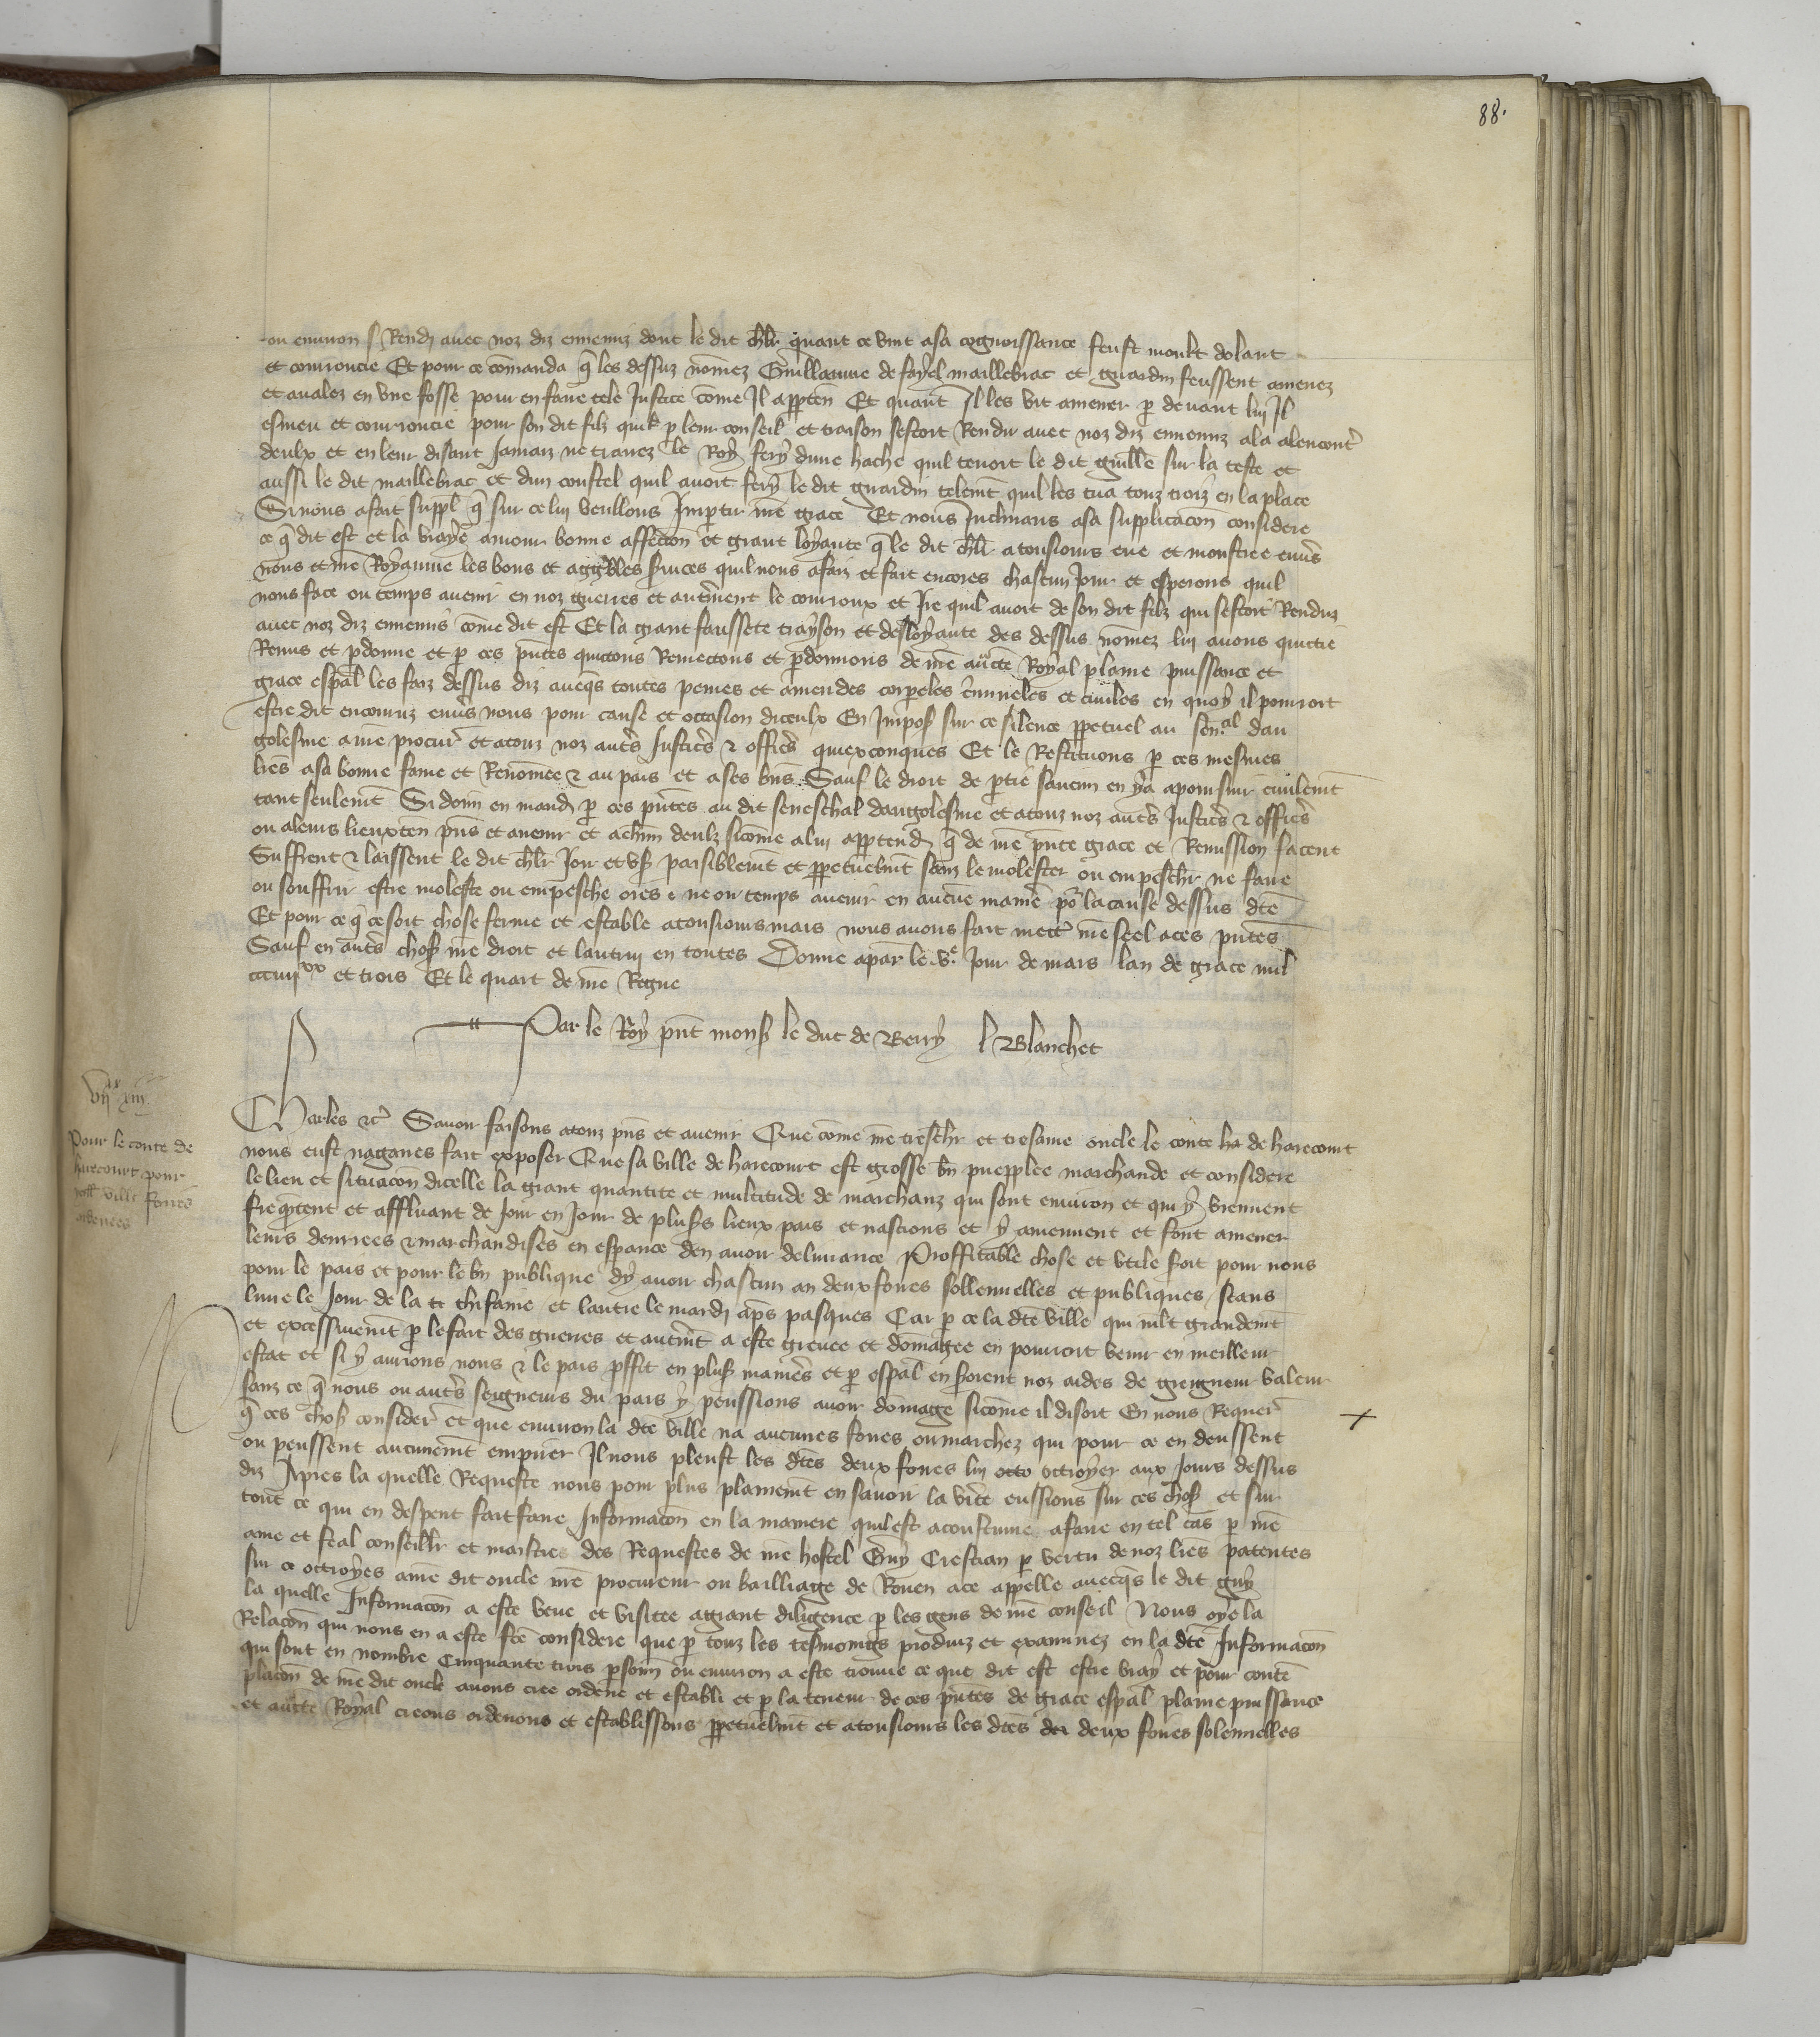 88.
ou environ s Rendi avec noz diz ennemis dont le dit chlr quant ce vint a sa cognoissance feust moult dolant
et courroucie Et pour ce comanda q̃ les dessuz nom̃ez Guillaume de fayel maillebrac et guardin feussent amenez
et avalez en vne fosse pour en faire tele Justice com̃e Il appten Et quant Il les vit amener p devant lui Il
esmeu et courroucie pour son dit filz quil p leur conseil et traison sestoit Rendu avec noz diz ennemis ala alencontr̃
deulx et en leur disant Jamaiz ne trairez le Roy fery dune hache quil tenoit le dit guillẽ sur la teste et
aussi le dit maillebrac et dun coustel quil avoit fery le dit guardin telemt̃ quil les tua touz troiz en la place
Si nous a fait suppl q̃ sur ce lui veullons Impartir nr̃e grace Et nous Inclinans a sa supplicacõn considere
ce q̃ dit est et la vraye amour bonne affecc̃on et grant loyaute q̃ le dit chlr a tousiours eue et monstree enũs
nous et nr̃e Royaume les bons et aggr̃bles s̃uices quil nous a faiz et fait encores chascun Jour et esperons quil
nous face ou temps avenir en noz guerres et autr̃ment le courroux et Ire quil avoit de son dit filz qui sestoit Renduz
avec noz diz ennemis com̃e dit est Et la grant faussete trayson et desloyaute des dessus nom̃ez lui avons quictie
Remis et p̃donne et p ces pñtes quictons Remectons et p̃donnons de nr̃e auct̃e Royal plaine puissance et
grace esp̃al les faiz dessus diz avecq̃s toutes peines et amendes corporeles c̃minelẽs et civiles en quoy il pourroit
estre dit encouruz enũs nous pour cause et occasion diceulx En Impos̃ sur ce silence ppetuel au señal dan
golesme a nr̃e procur̃ et a touz noz autr̃s Justic̃s & offic̃s quiexconques Et le Restituons p ces mesmes
lr̃es a sa bonne fame et Renom̃ee & au pais et a ses bñs Sauf le droit de ptie saucun en y a a poursuir civilemt̃
tant seulemt̃ Si donñ en mandñ p ces pñtes au dit seneschal dangolesme et a touz noz autr̃s Justic̃s & offic̃s
ou a leurs lieuxteñ pñs et avenir et a chũn deulz sicom̃e a lui apptendr̃ q̃ de nr̃e pñte grace et Remission facent
Suffrent & laissent le dit chlr Joir et us̃ paisiblemt̃ et ppetuelmt̃ sanz le molester ou empeschr̃ ne faire
ou souffrir estre moleste ou empesche ores & ne ou temps avenir en aucũe manier̃ po² la cause dessus dt̃e
Et pour ce q̃ ce soit chose ferme et estable a tousiours mais nous avons fait mectr̃ nr̃e seel a ces pñtes
Sauf en autr̃s chos̃ nr̃e droit et lautrui en toutes Donne a par̃ le .v.e Jour de mars lan de grace mil
ccciiijxx et trois Et le quart de nr̃e Regne
Par le Roy pñt mons̃ le duc de Berry l Blanchet
vijxx xiij
Pour le conte de
harecourt pour
ville foires
ordenees
Charles &c̃ Savoir faisons a touz pñs et avenir Que com̃e nr̃e treschr̃ et tresame oncle le conte ha de harecourt
nous eust nagaires fait exposer Que sa ville de harecourt est grosse bñ puepplee marchande et considere
le lieu et situac̃on dicelle la grant quantite et multitude de marchanz qui sont environ et qui y viennent
freqtent et affluant de Jour en Jour de plus̃s lieux pais et nascions et y amenent et font amener
leurs denrrees & marchandises en esp̃ance den avoir delivrance Proffitable chose et utile s̃oit pour nous
pour le pais et pour le bñ publique dy avoir chascun an deux foires sollennelles et publiques / scans
lune le Jour de la te thifanie et lautre le mardi ap̃s pasques Car p ce la dt̃e ville qui mlt̃ grandemt̃
et excessivemt̃ p le fait des guerres et autmt̃ a este grevee et dom̃agee en pourroit venir en meilleur
estat et si y aurions nous & le pais p̃ffit en plus̃ manier̃s et p esp̃al en s̃oient noz aides de greigneur valeur
sanz ce q̃ nous ou autr̃s seigneurs du pais y peussions avoir dom̃age sicom̃e il disoit En nous Requer̃
q̃ ces chos̃ consider̃ et que environ la dt̃e ville na aucunes foires ou marchez qui pour ce en deussent
ou peussent aucunemt̃ empirer Il nous pleust les dt̃es deux foires lui otto ottroyer aux Jours dessus
diz Apres la quelle Requeste nous pour plus plainemt̃ en savoir la vr̃te eussions sur ces chos̃ et sur
tout ce qui en despent fait faire Informac̃on en la maniere quil est acoustume a faire en tel cas p nr̃e
ame et feal conseillr̃ et maistre des Requestes de nr̃e hostel Guy Crestian p vertu de noz lr̃es patentes
sur ce ottroyes a nr̃e dit oncle nr̃e procureur ou bailliage de Rouen a ce appelle avecq̃s le dit guy
la quelle Informac̃on a este veue et visitee a grant diligence p les gens de nr̃e conseil Nous oye la
Relac̃on qui nous en a este fc̃e considere que p touz les tesmoings produiz et examinez en la dt̃e Informac̃on
qui sont en nombre Cinquante trois psonñ ou environ a este trouve ce que dit est estre vray et pour contẽ
placõn de nr̃e dit oncle avons cree ordene et establi et p la teneur de ces pñtes de grace esp̃al plaine puissance
et auct̃e Royal creons ordenons et establissons ppetuelmt̃ et a tousiours les dt̃es der deux foires solennelles